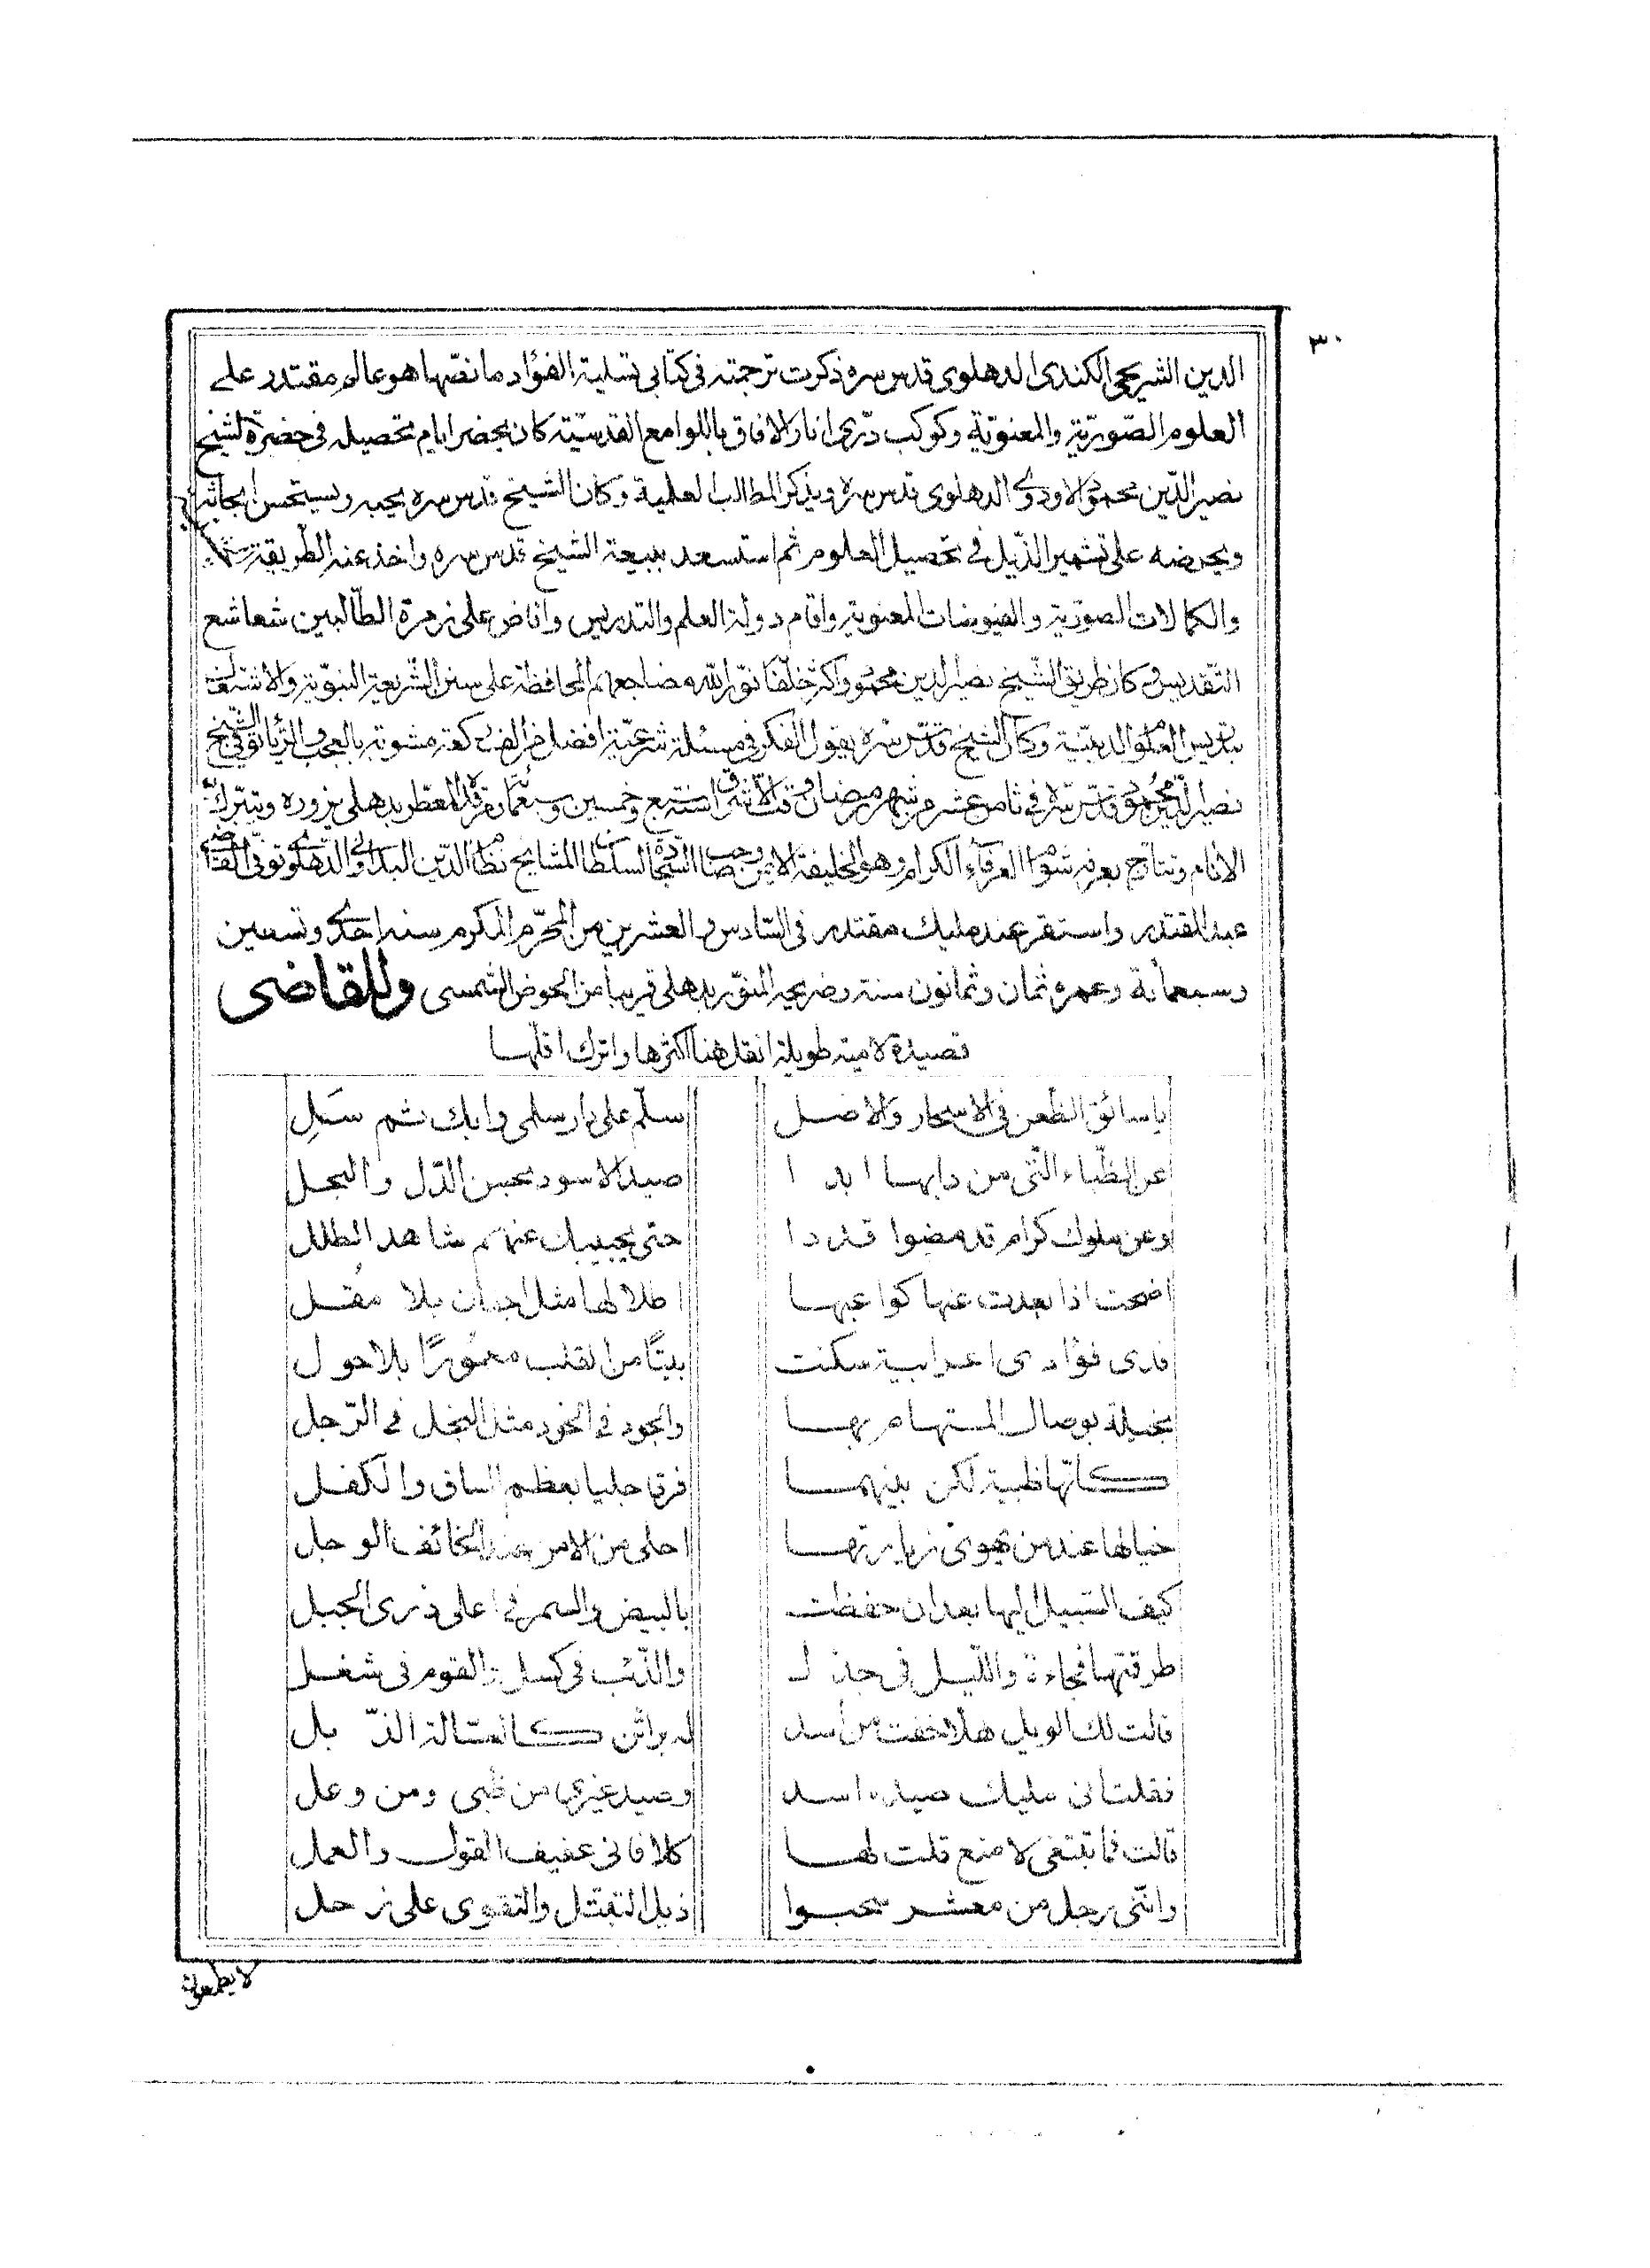 ٣٠
الدين الشريحي الكندى الدهلوى قدس سره ذكرت ترجمته فى كتابى تسلية الفؤاد ما نصّها هو عالم مقتدر على
العلوم الصّوريّة والمعنويّة وكوكب درّى انار الآفاق باللوامع القدسيّة كان يحضر ايام تحصيله فى حضرة الشيخ
نصير الدّين محمود الاودى الدهلوى قدس سره ويذكر المطالب العلمية وكان الشيخ قدس سره يحبه ويستحسن ابحاثه
ويحرضه على تشمير الذّيل فى تحصيل العلوم ثم استسعد ببيعة الشيخ قدس سره واخذ عنه الطّريقة
والكمالات الصورّية والفيوضات المعنوية واقام دولة العلم والتدريس وافاض على زمرة الطّالبين شعاشع
التّقديس وكان طريق الشّيخ نصير الدين محمود واكثر خلفائه نوّر الله مضاجعهم المحافظة على سنن الشّريعة النبوّية والاشتغال
بتدريس العلوم الدينيّة وكان الشيخ قدّس سّره يقول الفكر فى مسئلة شرعيّة افضل من الف ركعة مشوبة بالعجب والرّياء توفى الشّيخ
نصير الدّين محمود قدّس سّره فى ثامن عشر من شهر رمضان وقت الاشراق سنة سبع وخمسين وسبعمائة مرقده المعطر بدهلى يزوره ويتبرّك به
الانام ويتأرّج بعرفه مشام العرفاء الكرام وهو الخليفة الارشد من السلطان المشايخ نظام الدّين البداونى الدّهلوى توفّى القاضى
عبد المقتدر واستقر عند مليك مقتدر فى السّادس والعشرين من المحرّم المكرم سنه احدى وتسعين
وسبعمائة وعمره ثمان وثمانون سنة وضريحه المنوّر بدهلى قريبا من الحوض الشمسى وللقاضى
قصيدة لامية طويلة انقل هنا اكثرها واترك اقلّها
يا سائق الظّعن فى الاسحار والاصل سلّم على دار سلمى وابك ثم سَلِ
عن الظّباء الّتى من دابها ابدا صيد الاسود بحسن الدّل والنجل
وعن ملوك كرام قد مضوا قددا حتى يجيبك عنهم شاهد الطلل
اضحت اذا بعدت عنها كواعبها اطلالها مثل اجفان بلا مُقل
فدى فؤادى اعرابية سكنت بيتًا من القلب معمورًا بلا حول
بخيلة بوصال المستهام بها والجود فى الخود مثل البخل فى الرّجل
كانّها ظبية لكن بينهما فرقا جليا بعظم الساق والكفل
خيالها عند من يهوى زيارتها احلى من الامن عند الخائف الوجل
كيف السّبيل اليها بعد ان حفظت بالبيض والسمر فى اعلى ذرى الجبل
طرقتها فجاءة واللّيل فى جذل والذّئب فى كسل والقوم فى شغل
قالت لك الويل هلّا خفت من اسد له براثن كالعسّالة الذّبل
فقلت انى مليك صيده اسد وصيد غيرى من ظبى ومن وعل
قالت فما تبتغى لا منع قلت لها كلا فانى عفيف القول والعمل
وانّنى رجل من معشر سحبوا ذيل التفضّل والتقوى على زحل